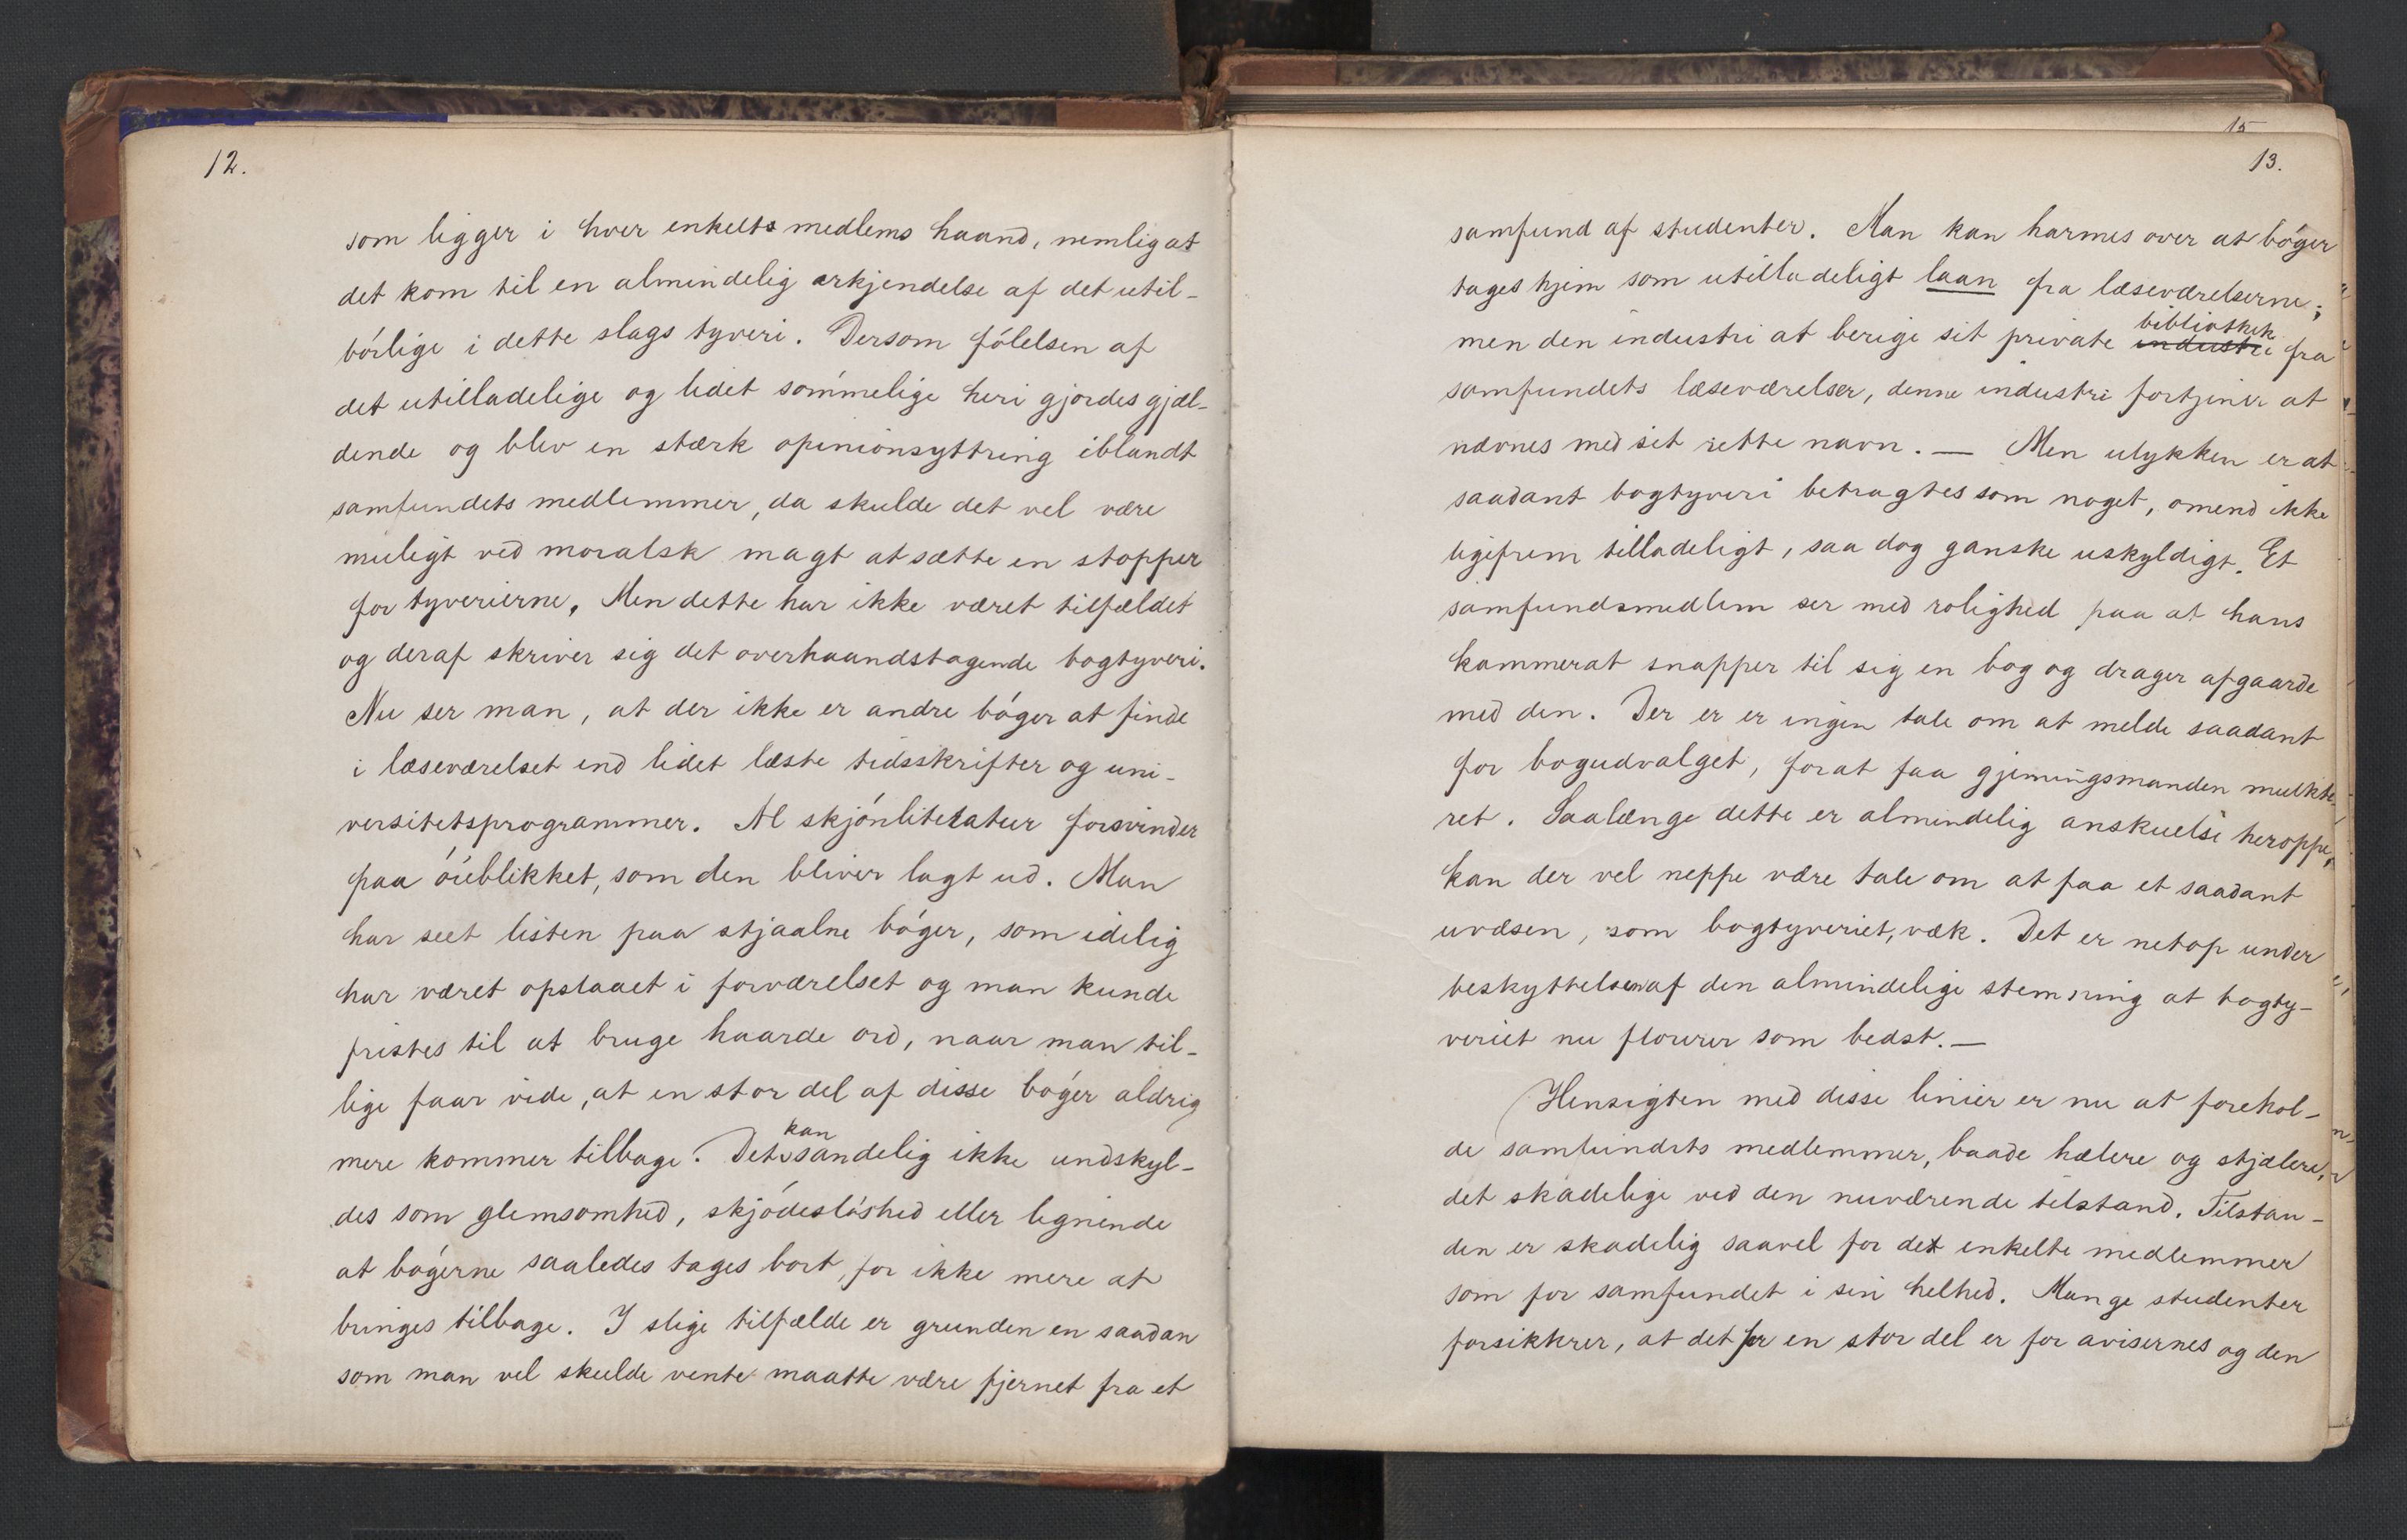 12.
som ligger i hver enkelts medlems haand, nemlig at
det kom til en almindelig erkjendelse af det util-
bórlige i dette slags tyveri. Dersom fólelsen af
det utilladelige og lidet sómmelige heri gjordes gjæl-
dende og blev en stærk opinionsyttring iblandt
samfundets medlemmer, da skulde det vel være
muligt ved moralsk magt at sætte en stopper
for tyverierne. Men dette har ikke været tilfældet
og deraf skriver sig det overhaandstagende bogtyveri.
Nu ser man, at der ikke er andre bóger at finde
i læseværelset end lidet læste tidsskrifter og uni-
versitetsprogrammer. Al skjónliteratur forsvinder
paa óieblikket, som den bliver lagt ud. Man
har seet listen paa stjaalne bóger, som idelig
har været opslaaet i forværelset og man kunde
fristes til at bruge haarde ord, naar man til-
lige faar vide, at en stor del af disse bóger aldrig
mere kommer tilbage. Det kan sandelig ikke undskyl-
des som glemsomhed, skjódeslóshed eller lignende
at bógerne saaledes tages bort, for ikke mere at
bringes tilbage. I slige tilfælde er grunden en saadan
som man vel skulde vente maatte være fjernet fra et
15
13.
samfund af studenter. Man kan harmes over at bóger
tages hjem som utilladeligt laan fra læseværelserne;
men den industri at berige sit private industri bibliothek fra
samfundets læseværelser, denne industri fortjener at
nævnes med sit rette navn. — Men ulykken er at
saadant bogtyveri betragtes som noget, omend ikke
ligefrem tilladeligt, saa dog ganske uskyldigt. Et
samfundsmedlem ser med rolighed paa at hans
kammerat snapper til sig en bog og drager afgaarde
med den. Der er er ingen tale om at melde saadant
for bogudvalget, forat faa gjerningsmanden mulkte
ret. Saalænge dette er almindelig anskuelse heroppe,
kan der vel neppe være tale om at faa et saadant
uvæsen, som bogtyveriet, væk. Det er netop under
beskyttelsen af den almindelige stemning at bogty-
veriet nu florerer som bedst. —
Hensigten med disse linier er nu at forehol-
de samfundets medlemmer, baade hælere og stjælere,
det skadelige ved den nuværende tilstand. Tilstan-
den er skadelig saavel for det enkelte medlemmer
som for samfundet i sin helhed. Mange studenter
forsikkrer, at det for en stor del er for avisernes og den